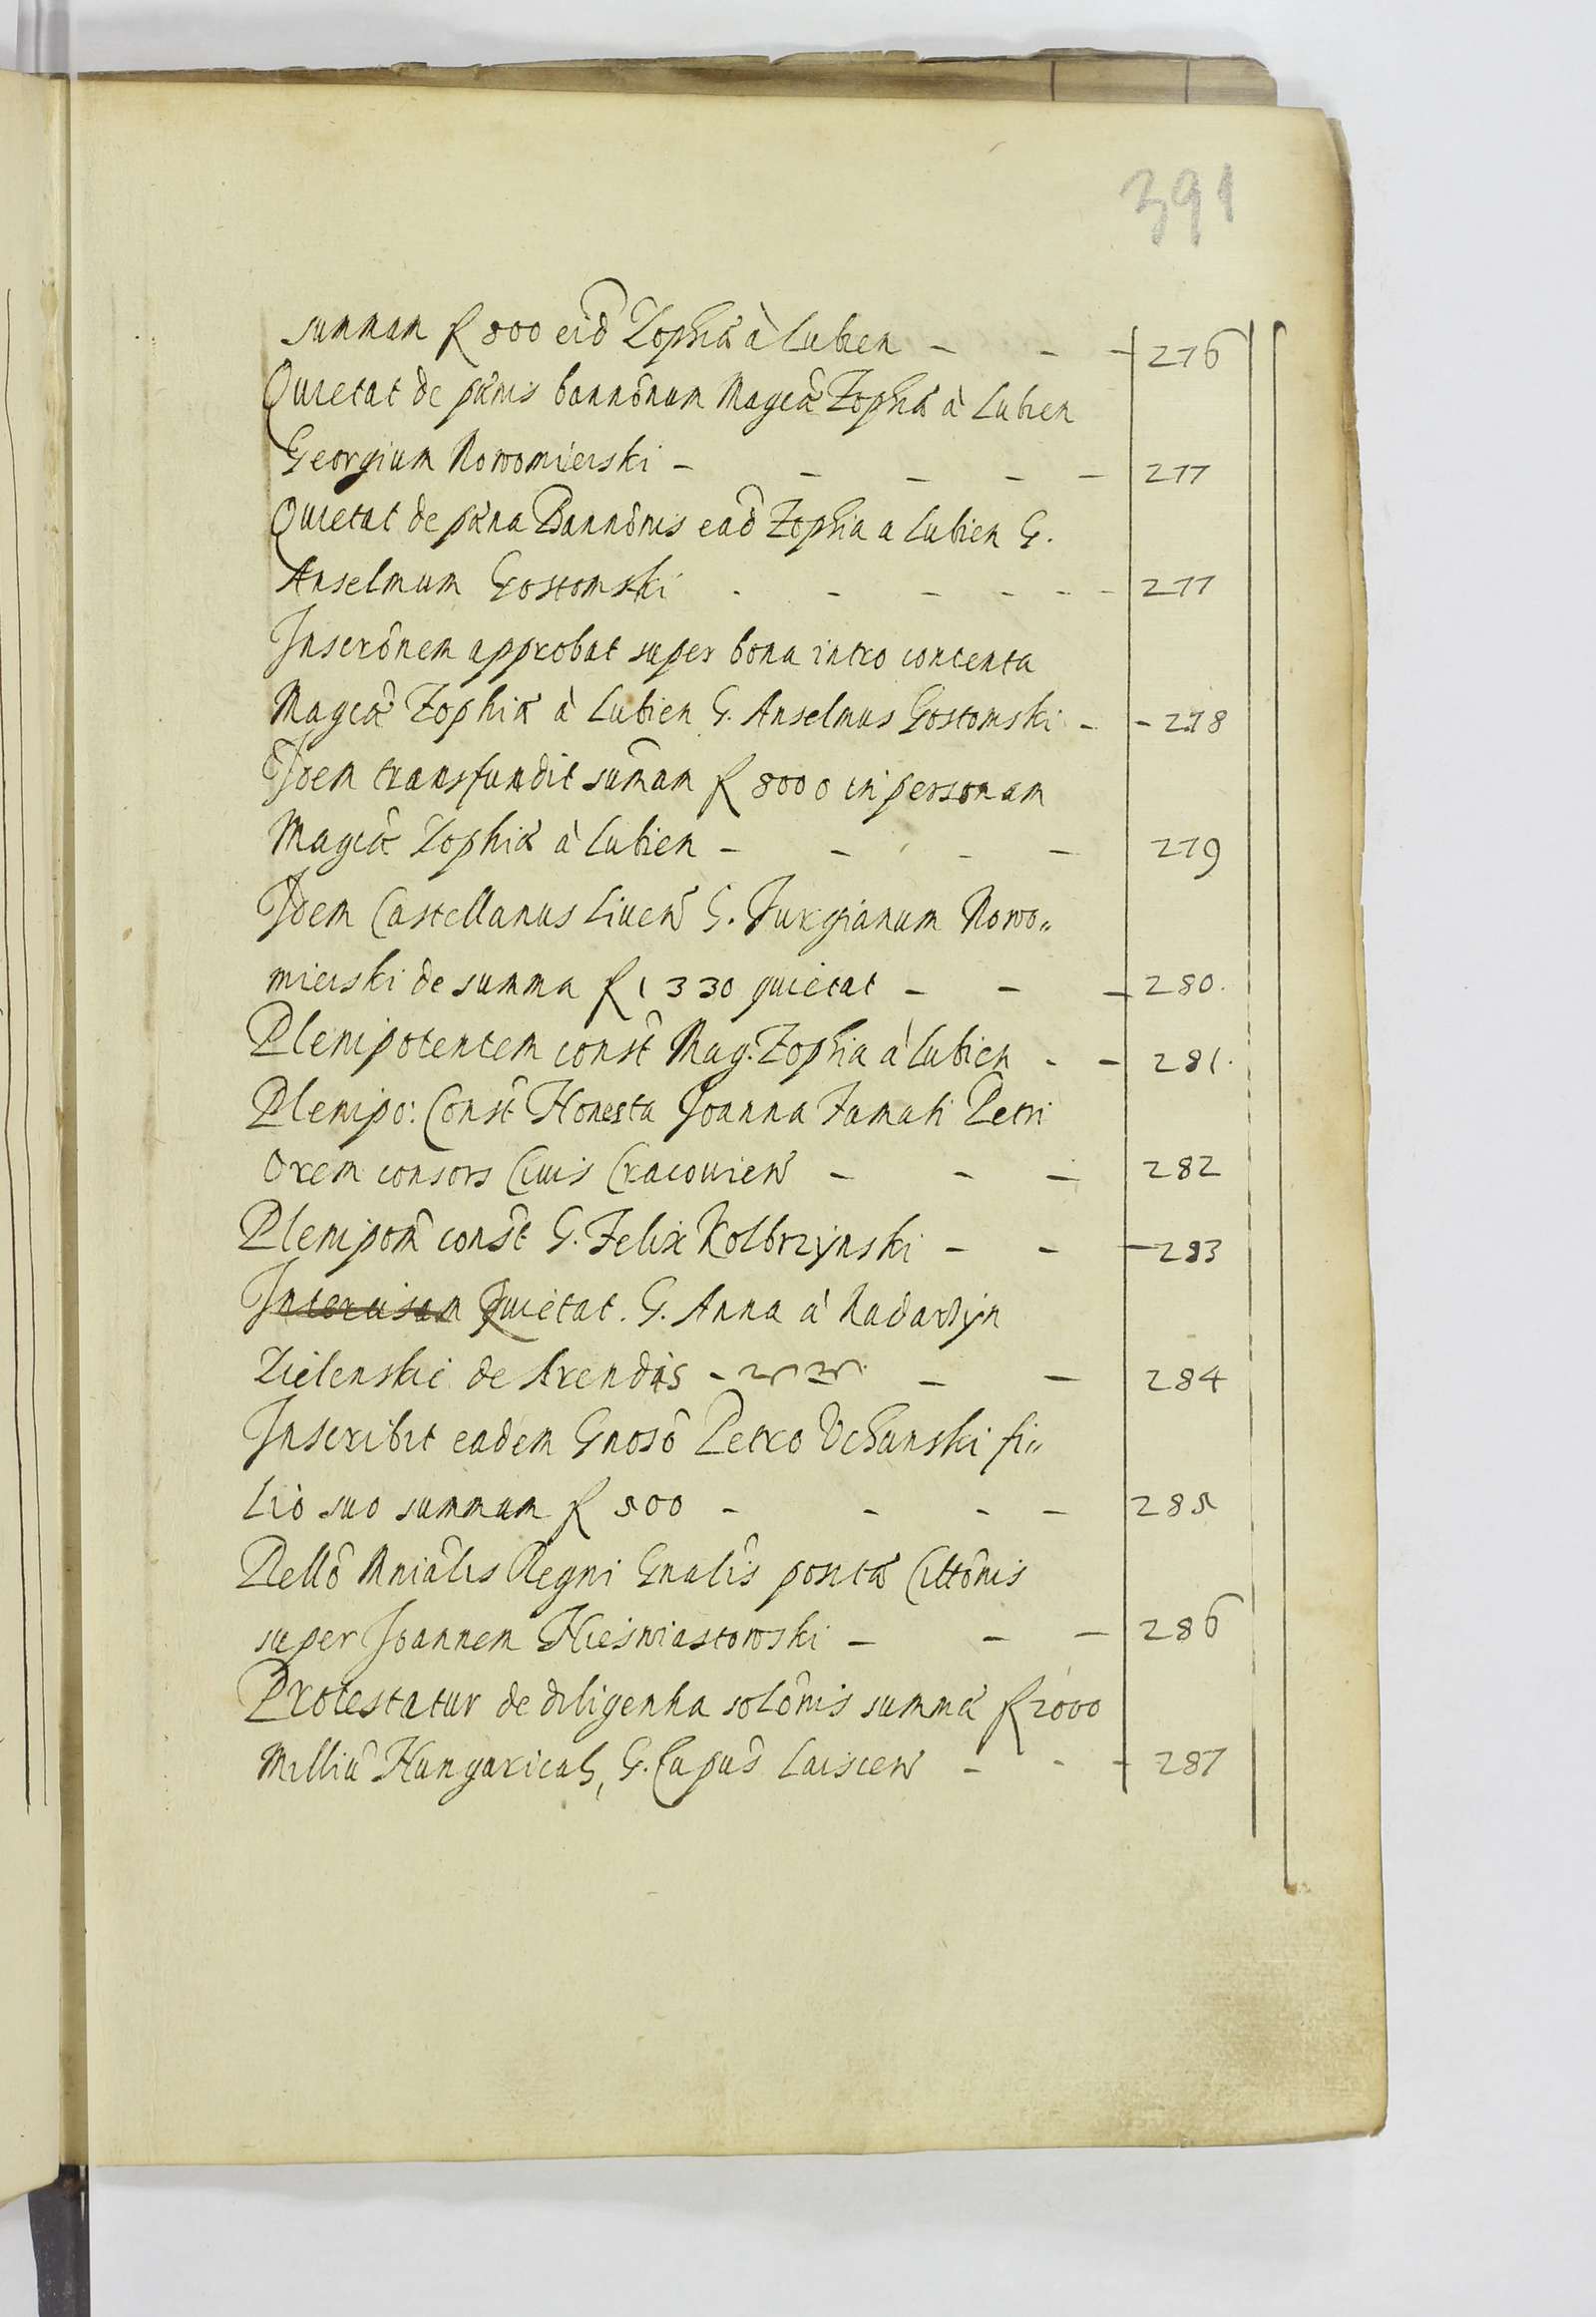 391
summam fl 800 eid Zophiæ à Lubien - - - 276
Quietat de pænis bannônum Magcâ Zophiâ à Lubien
Georgium Nowomieiski - - - - - 277
Quietat de pæna Bannônis ead Zophia a Lubien G.
Anselmum Gostomski - - - - - - 277
Inscrônem approbat super bona intro contenta
Magcæ Zophiæ à Lubien G. Anselmus Gostomski - - 278
Idem transfundit sumam fl 8000 in personam
Magcæ Zophiæ à Lubien - - - - 279
Idem Castellanus Liuen G. Jurgianum Nowo„
mieiski de summa fl 1330 quietat - - - 280.
Plenipotentem const Mag. Zophia à Lubien - - 281.
Plenipo: Const Honesta Joanna Famati Petri
Orem consors Ciuis Cracouien - - - 282
Plenipom const G. Felix Kolbrzynski - - - 283
Intercisam Quietat. G. Anna à Radawyn
Zielenskie de Arendis - - - 284
Inscribit eadem Gnoso Petro Vchanski fi„
lio suo summam fl 500 - - - - 285
Regni Gnalis posita Cittônis
super Joannem - - - 286
Protestatur de diligentia solônis summæ fl 2000
Milliû Hungarical, G. - - - 287